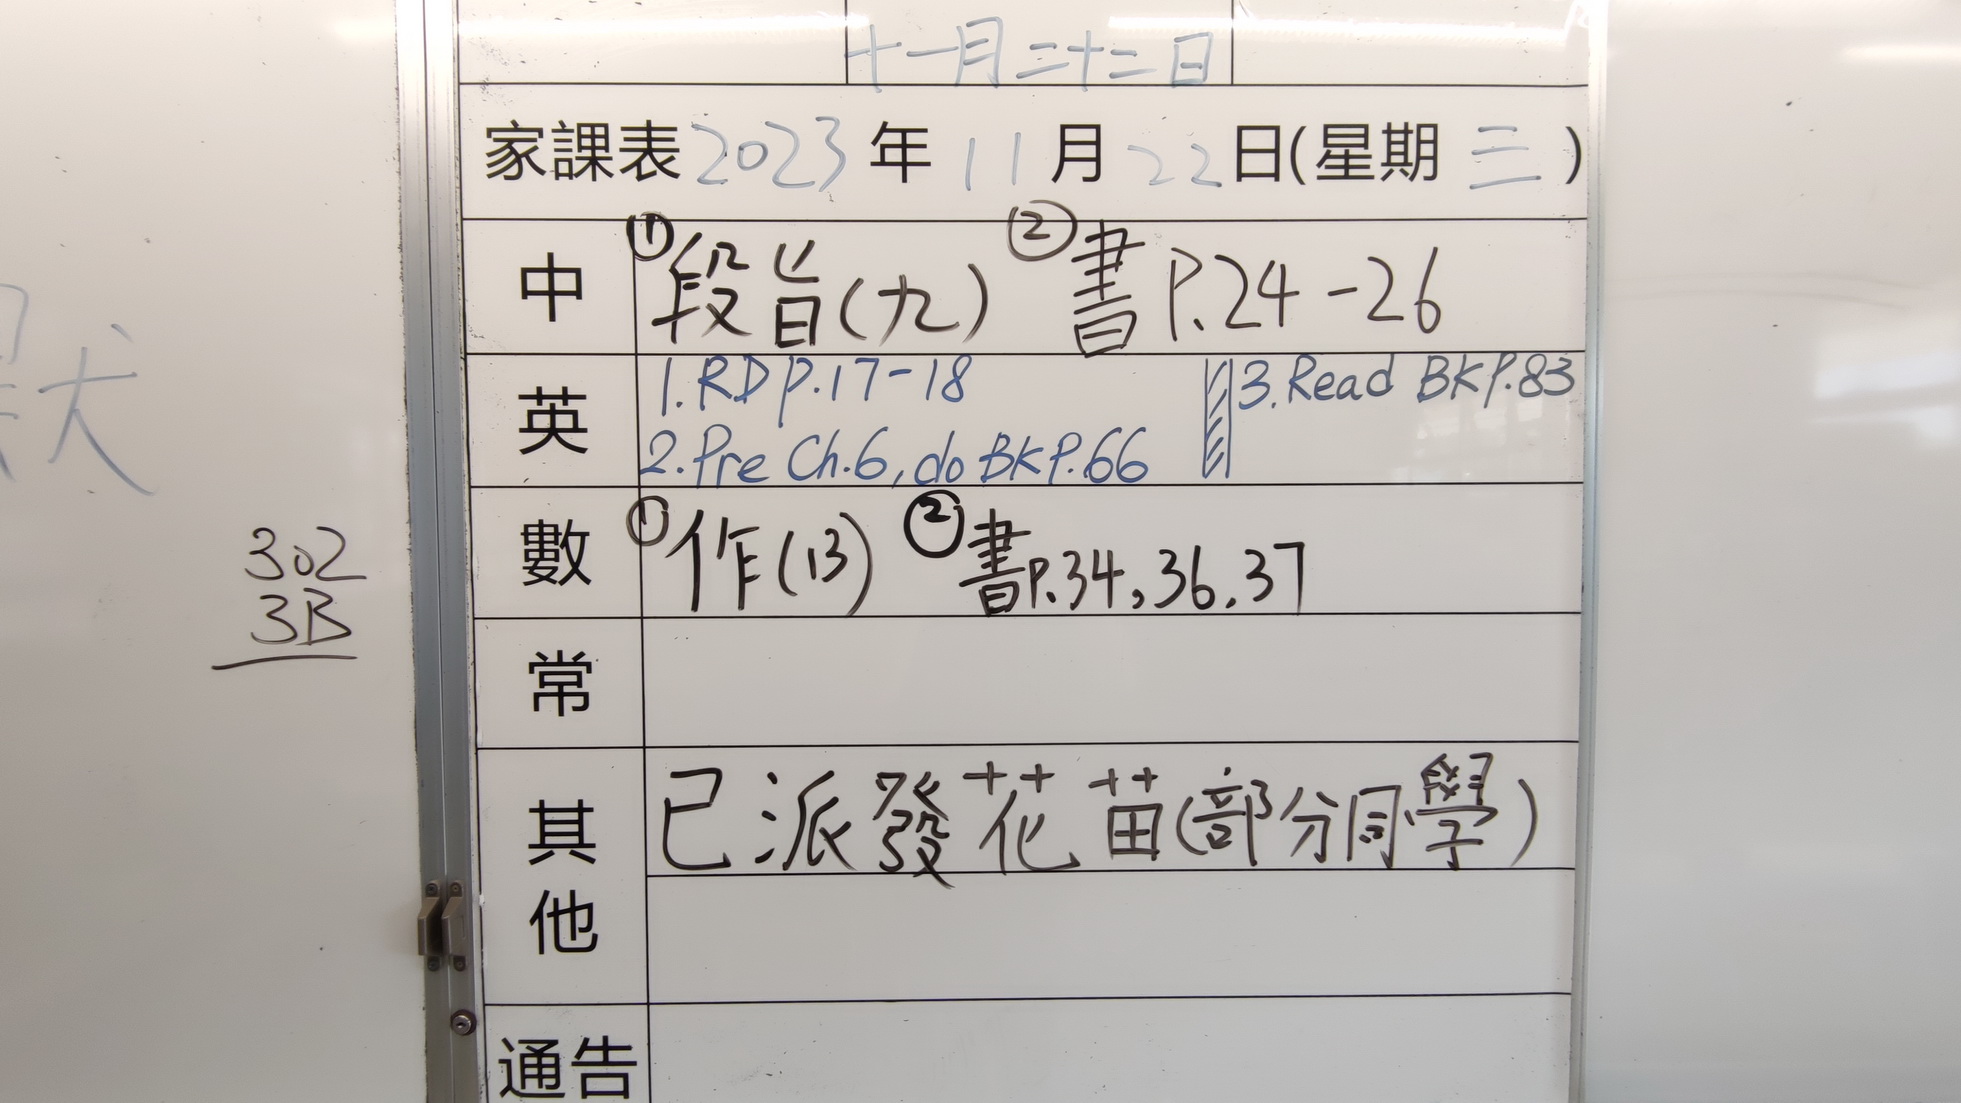 十一月二十二日
家課表 2023 年 11 月 22 日(星期 三 )
中 ①段旨(九) ②書P.24-26
英 1.RD p.17-18 3.Read BKP.83
2.Pre Ch.6, do BKP.66
數 ①作(13) ②書P.34,36,37
常
其他 已派發花苗(部分同學)
通告
302
3B